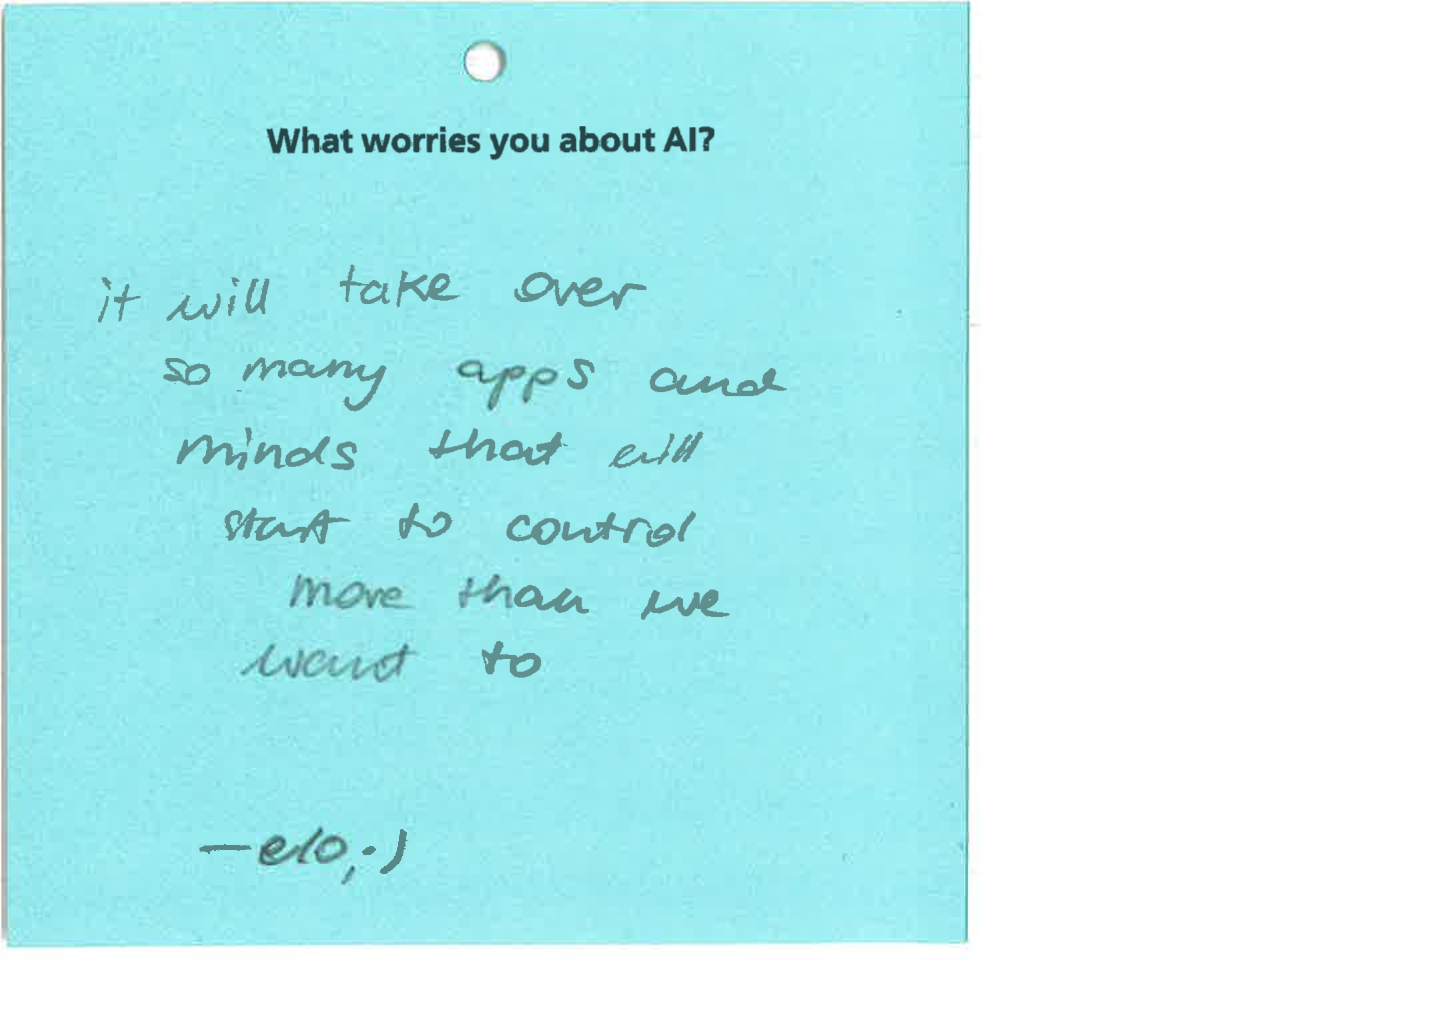 What worries you about AI?
it will take over
so many apps and
minds that will
start to control
more than we
want to
—elo,.)